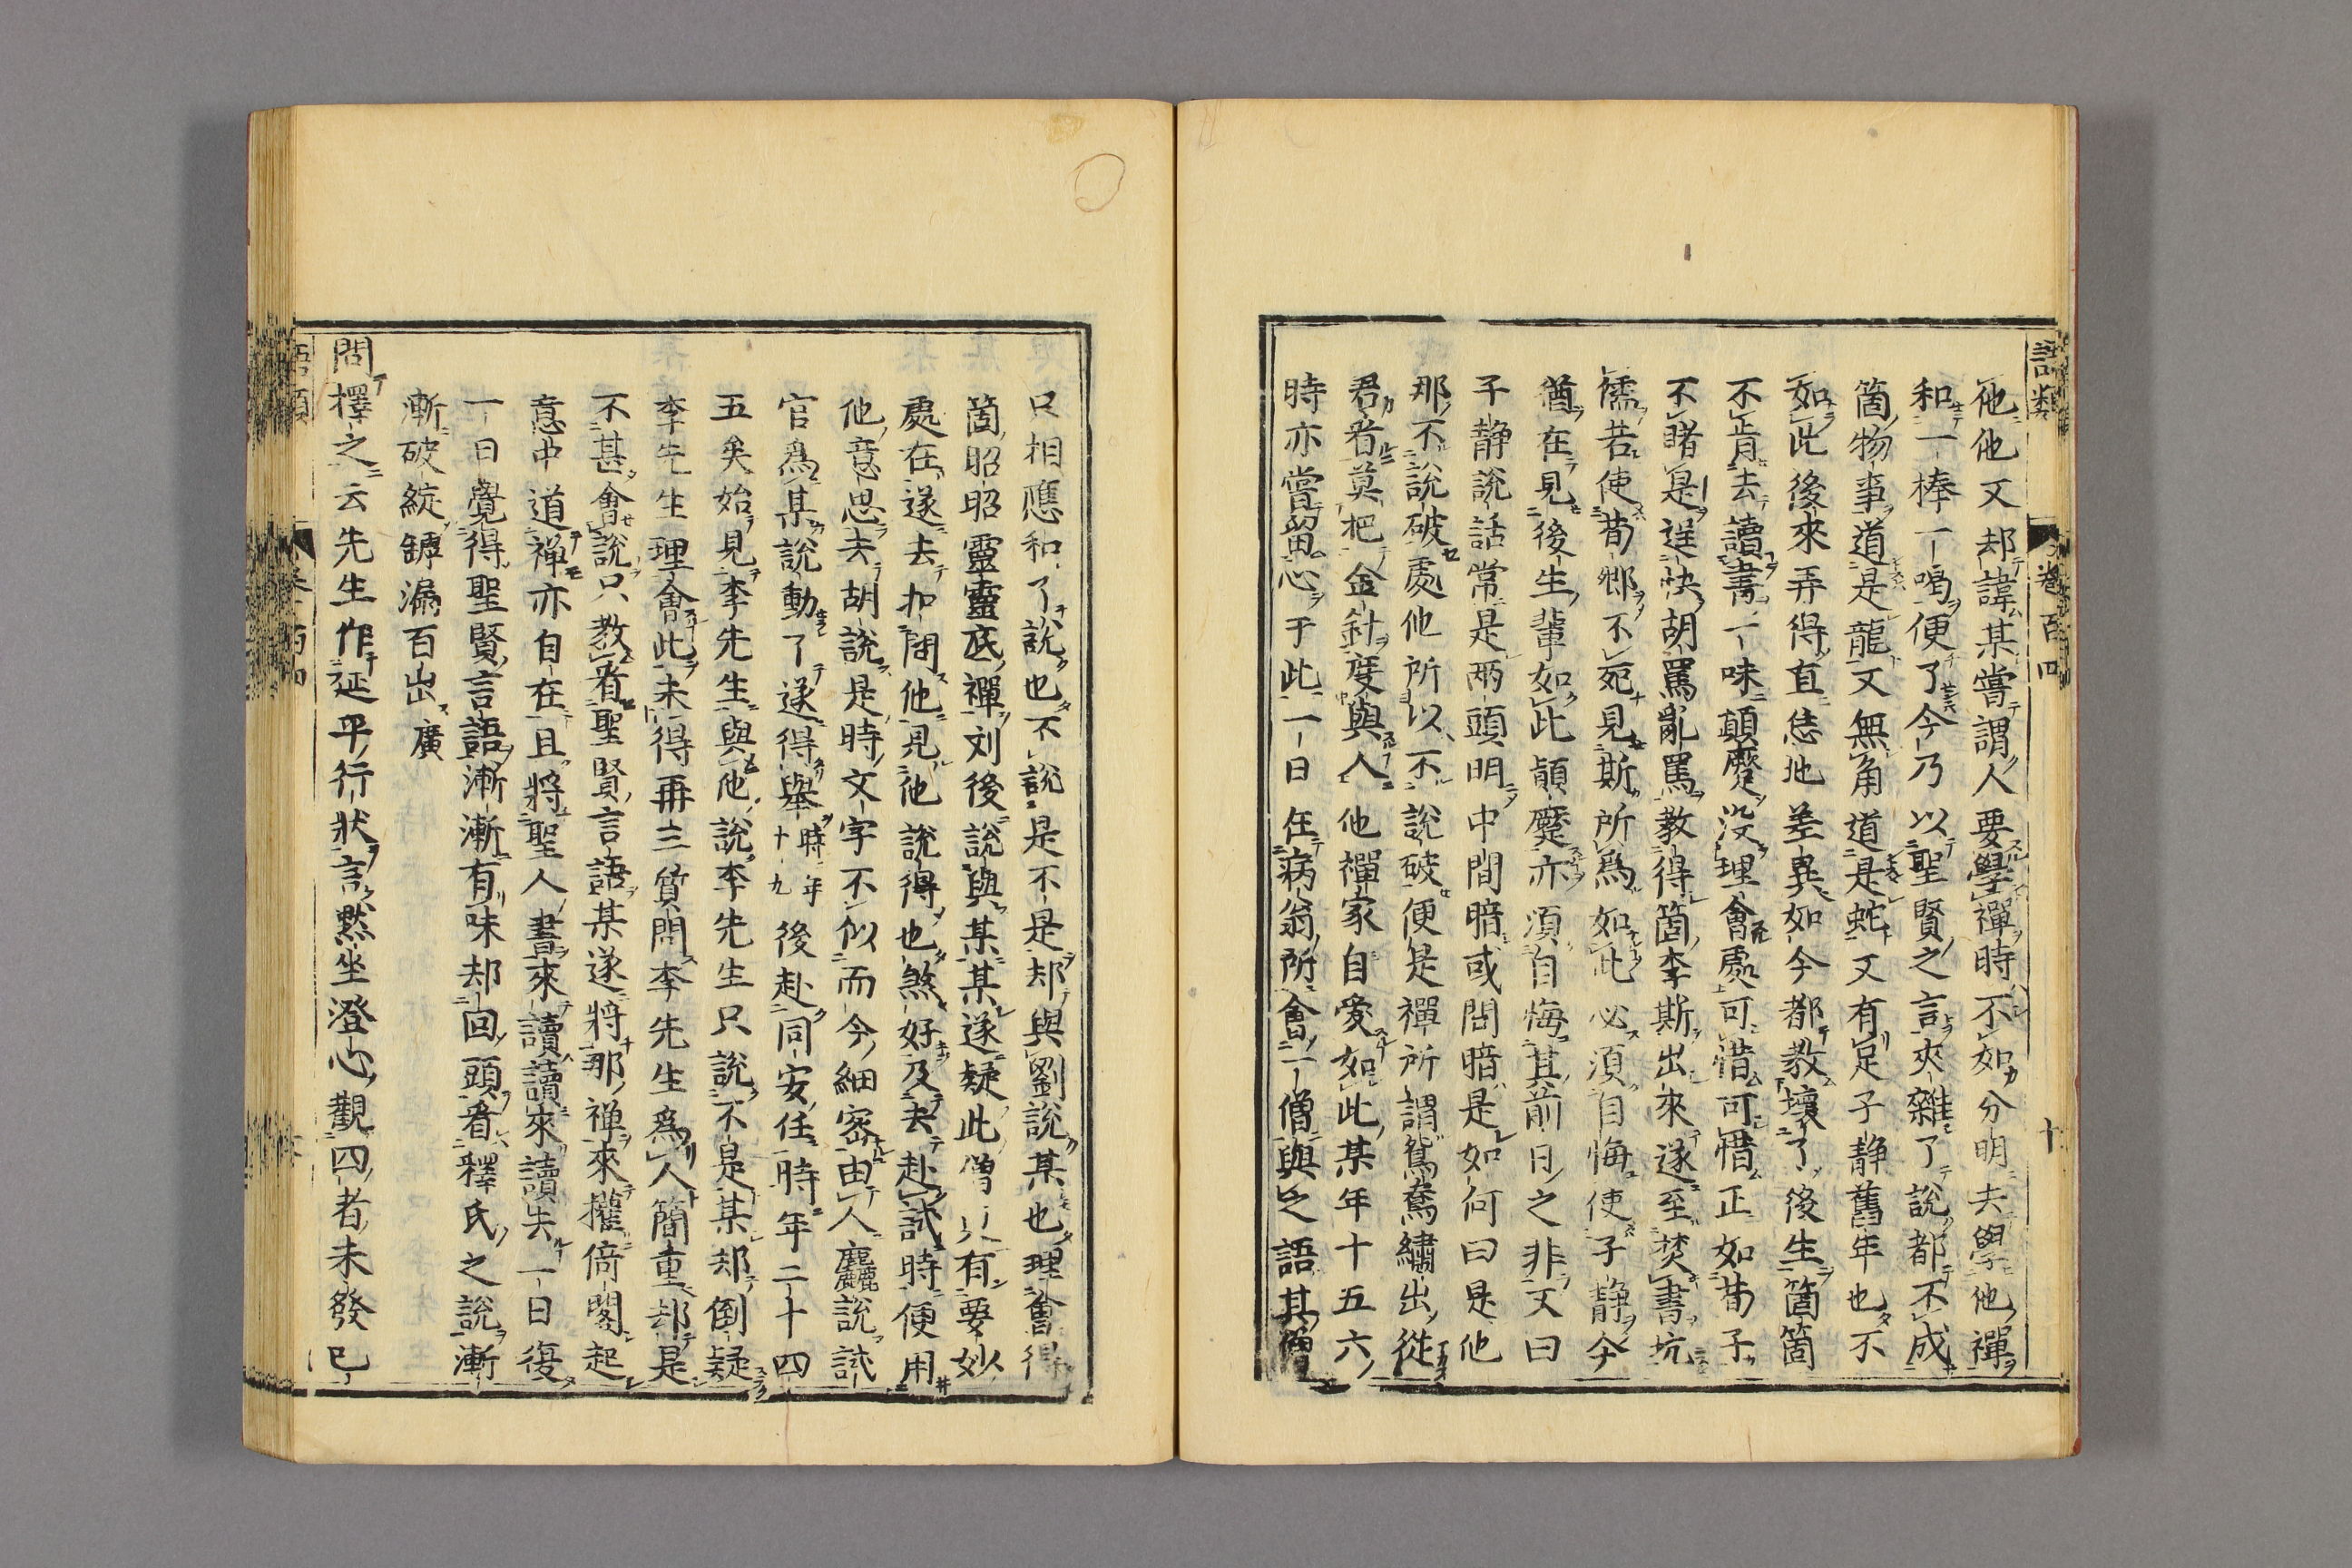 語類 卷百四 十
他他又却諱某嘗謂人要學禪時不如分明去學他禪
和一棒一喝便了今乃以聖賢之言夾雜了說都不成
箇物事道是龍又無角道是蛇又有足子靜舊年也不
如此後來弄得直恁地差異如今都教壞了後生箇箇
不肯去讀書一味顛蹷沒理會處可惜可惜正如荀子
不睹是逞快胡罵亂罵教得箇李斯出來遂至焚書坑
儒若使荀卿不死見斯所爲如此必須自悔使子靜今
猶在見後生輩如此顛蹷亦須自悔其前日之非又曰
子靜說話常是兩頭明中間暗或問暗是如何曰是他
那不說破處他所以不說破便是禪所謂鴛鴦繡出從
君看莫把金針度與人他禪家自愛如此某年十五六
時亦嘗留心于此一日在病翁所會一僧與之語其僧
只相應和了說也不說是不是却與劉說某也理會得
箇昭昭靈靈底禪刘後說與某某遂疑此僧 有要妙
處在遂去扣問他見他說得也煞好及去赴試時便用
他意思去胡說是時文字不似而今細密由人麤說試
官爲某說動了遂得舉時年十九後赴同安任時年二十四
五矣始見李先生與他說李先生只說不是某却倒疑
李先生理會此未得再三質問李先生爲人簡重却是
不甚會說只教看聖賢言語某遂將那禅來權倚閣起
意中道禅亦自在且將聖人書來讀讀來讀去一日復
一日覺得聖賢言語漸漸有味却回頭看釋氏之說漸
漸破綻罅漏百出廣
問擇之云先生作延平行狀言默坐澄心觀四者未發已
語類 卷百四